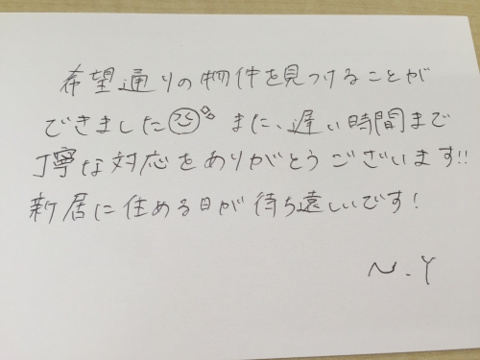 希望通りの物件を見つけることが
できました また、遅い時間まで
丁寧な対応をありがとうございます!!
新居に住める日が待ち遠しいです!
N.Y